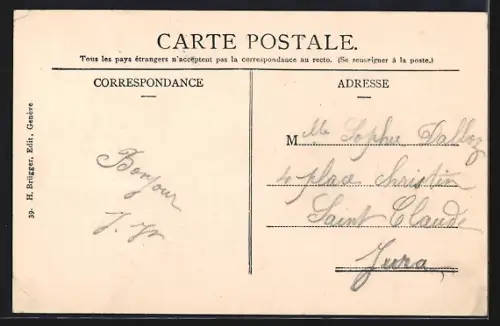 CARTE POSTALE.
Tous les pays étrangers n'acceptent pas la correspondance au recto. (Se renseigner à la poste.)
CORRESPONDANCE
ADRESSE
39. H. Brügger, Edit., Genève
Bonjour
M lle Sophie Dalloz
4 place Christin
Saint Claude
Jura